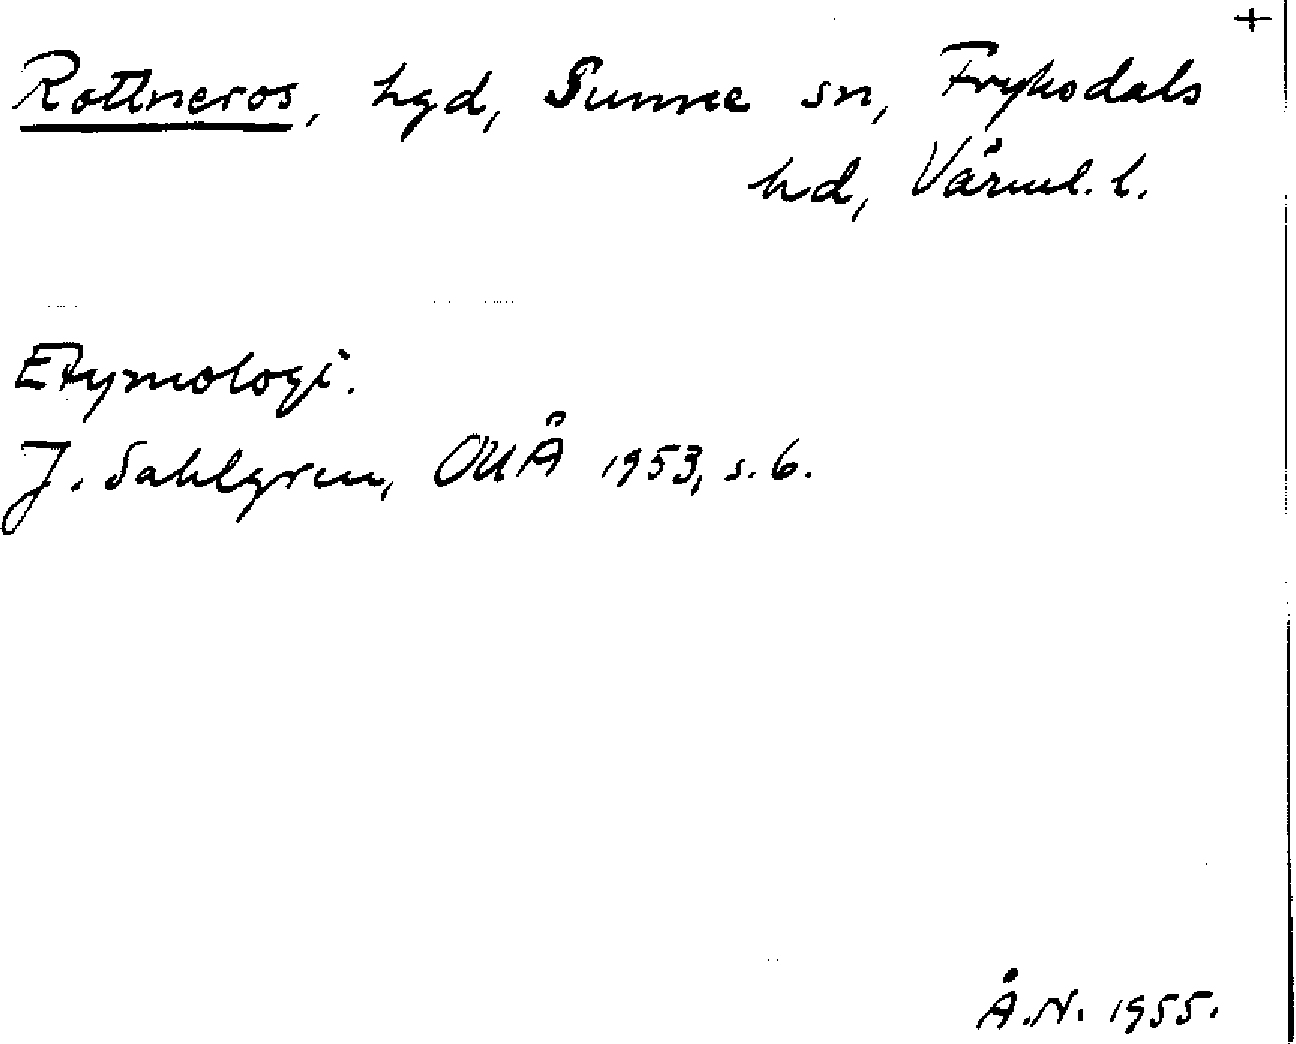 +
Rottneros, hgd, Sunne sn, Fryksdals
hd, Värml. l.
Etymologi.
J. Sahlgren, OUÅ 1953, s. 6.
Å.N. 1955.